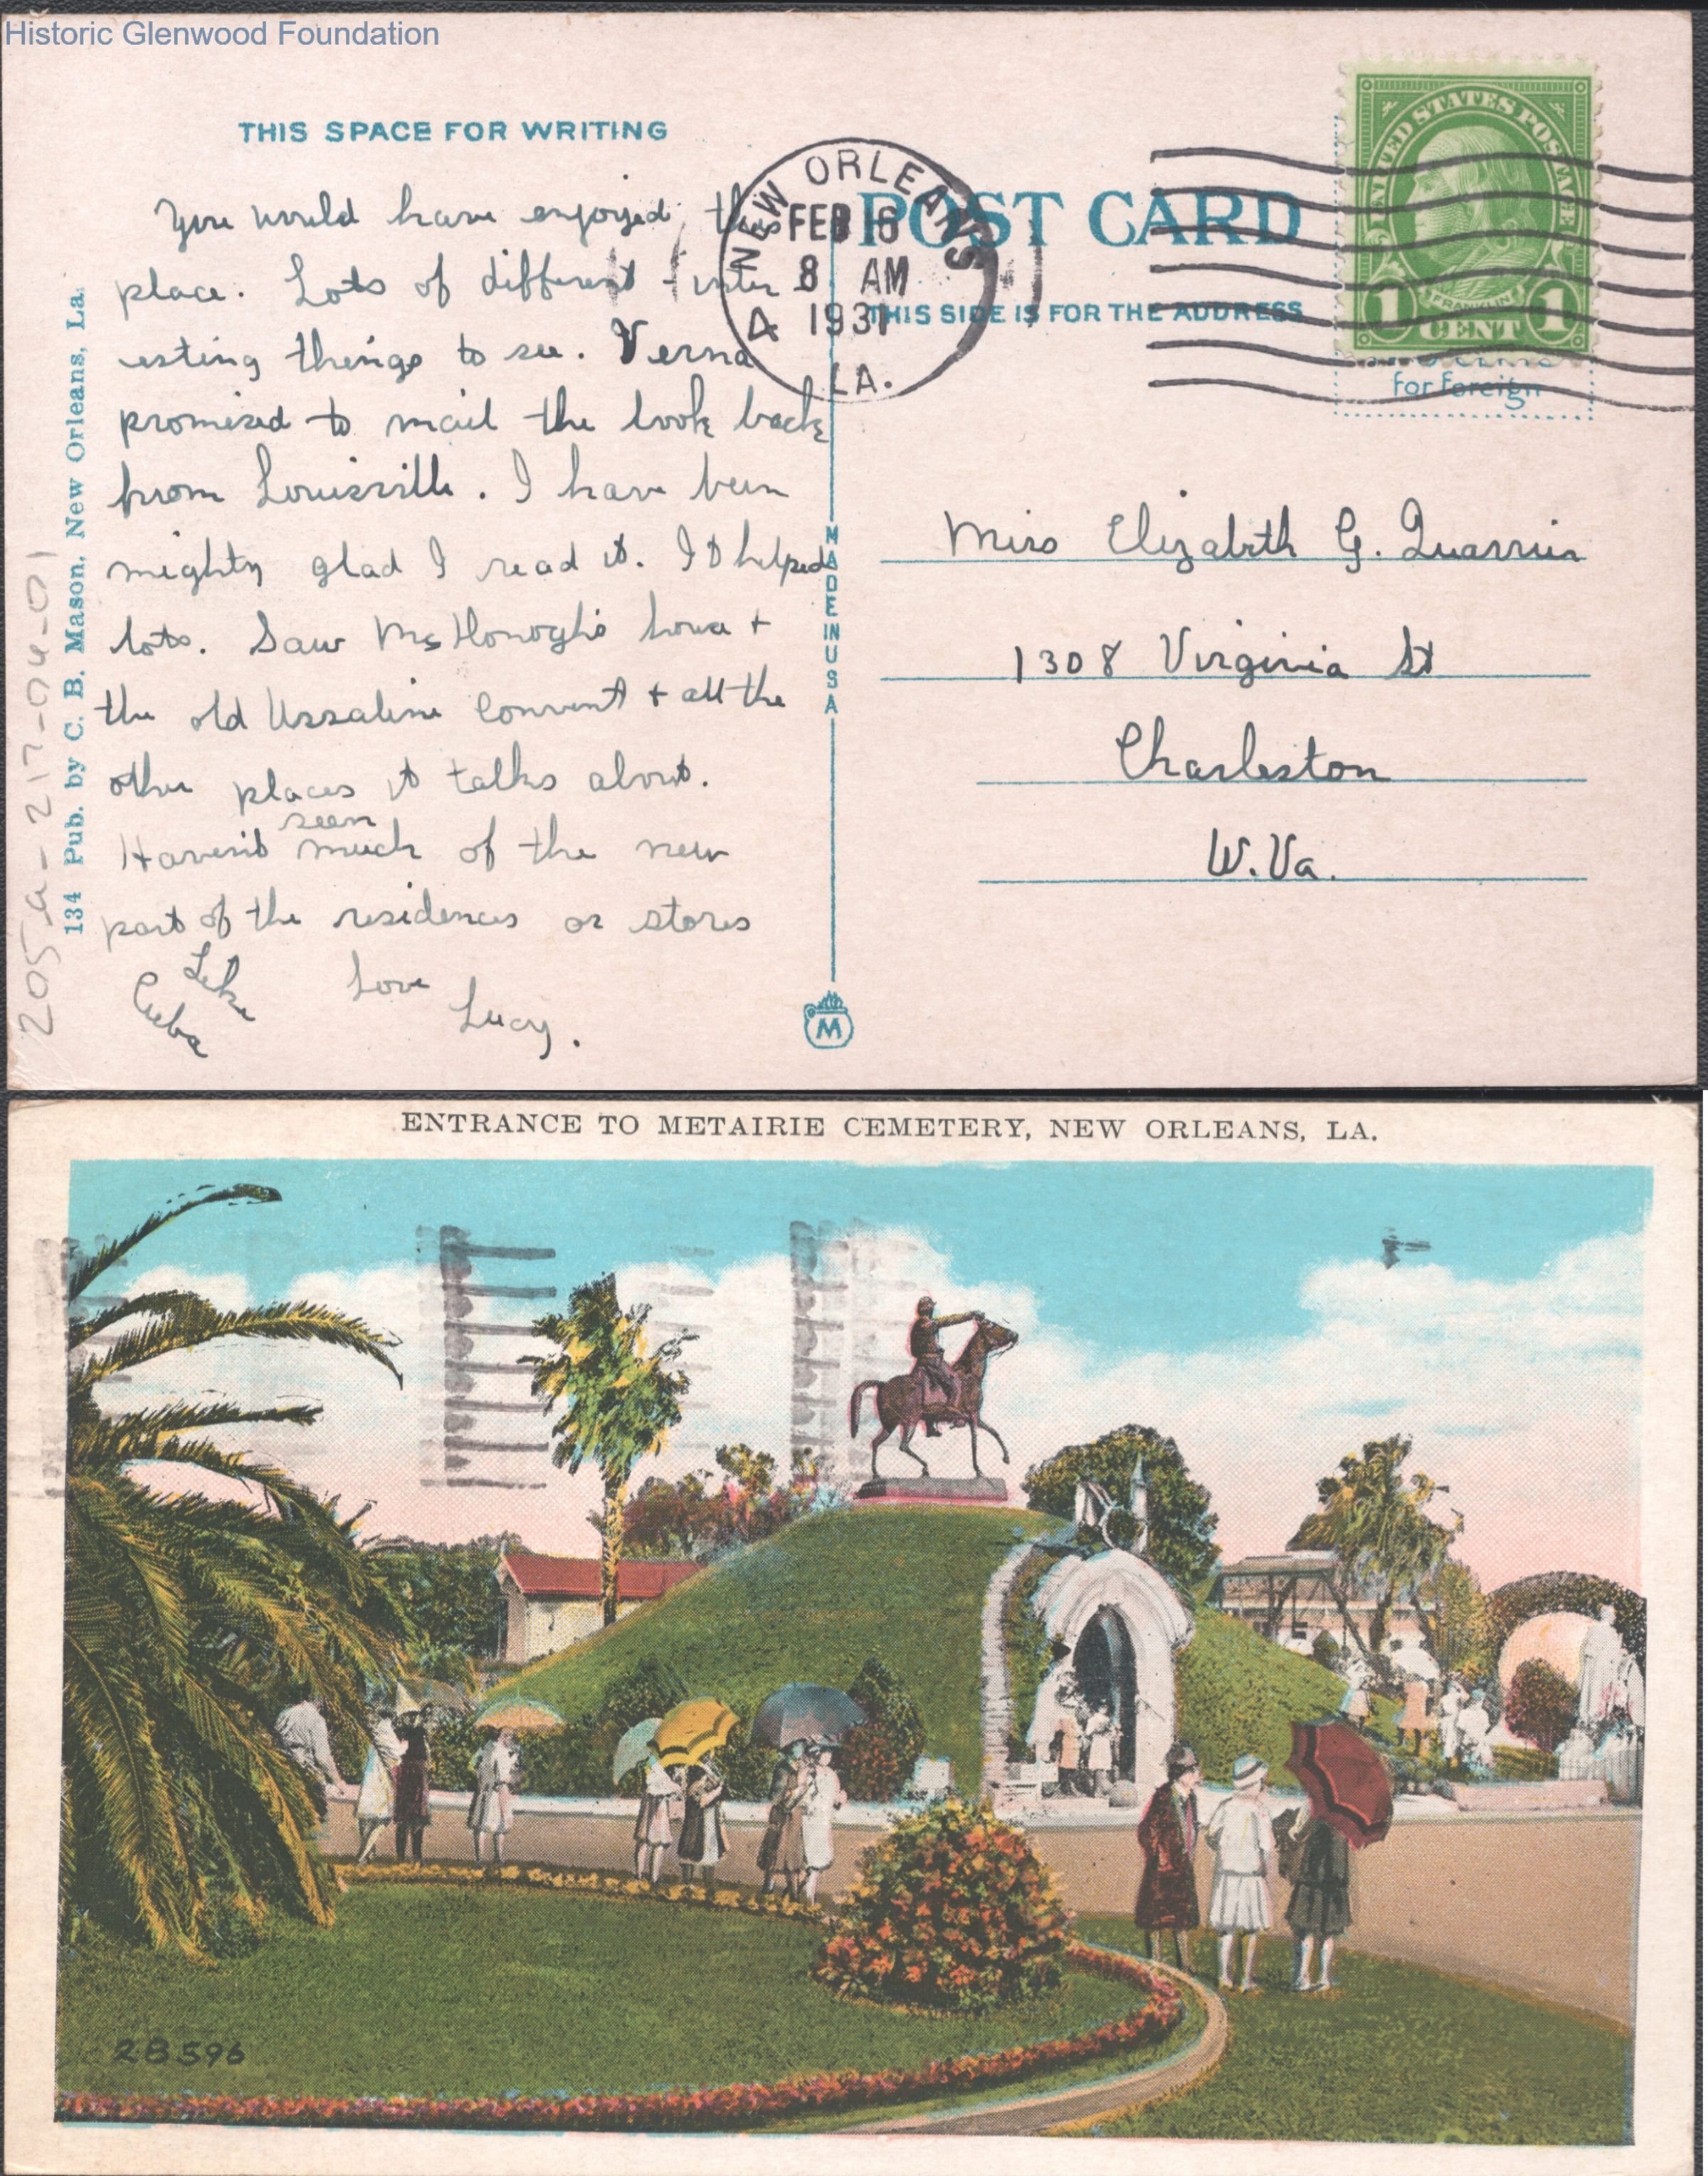 Historic Glenwood Foundation
THIS SPACE FOR WRITING
You would have enjoyed this
place. Lots of different inter
esting things to see. Verna
promised to mail the book back
from Louisville. I have been
mighty glad I read it. It helped
lots. Saw McHonogh's house +
the old Ursaline Convent + all the
other places it talks about.
seen
Haven't much of the new
part of the residences or stores
Like
Cuba
Love
Lucy.
134 Pub. by C. B. Mason, New Orleans, La.
205-a-217-04-01
NEW ORLEANS
FEB 6
8 AM
1931
4
LA.
POST CARD
THIS SIDE IS FOR THE ADDRESS
UNITED STATES POSTAGE
FRANKLIN
1 CENT 1
for foreign
MADE IN USA
M
Miss Elizabeth G. Quarrier
1308 Virginia St
Charleston
W. Va.
ENTRANCE TO METAIRIE CEMETERY, NEW ORLEANS, LA.
28596